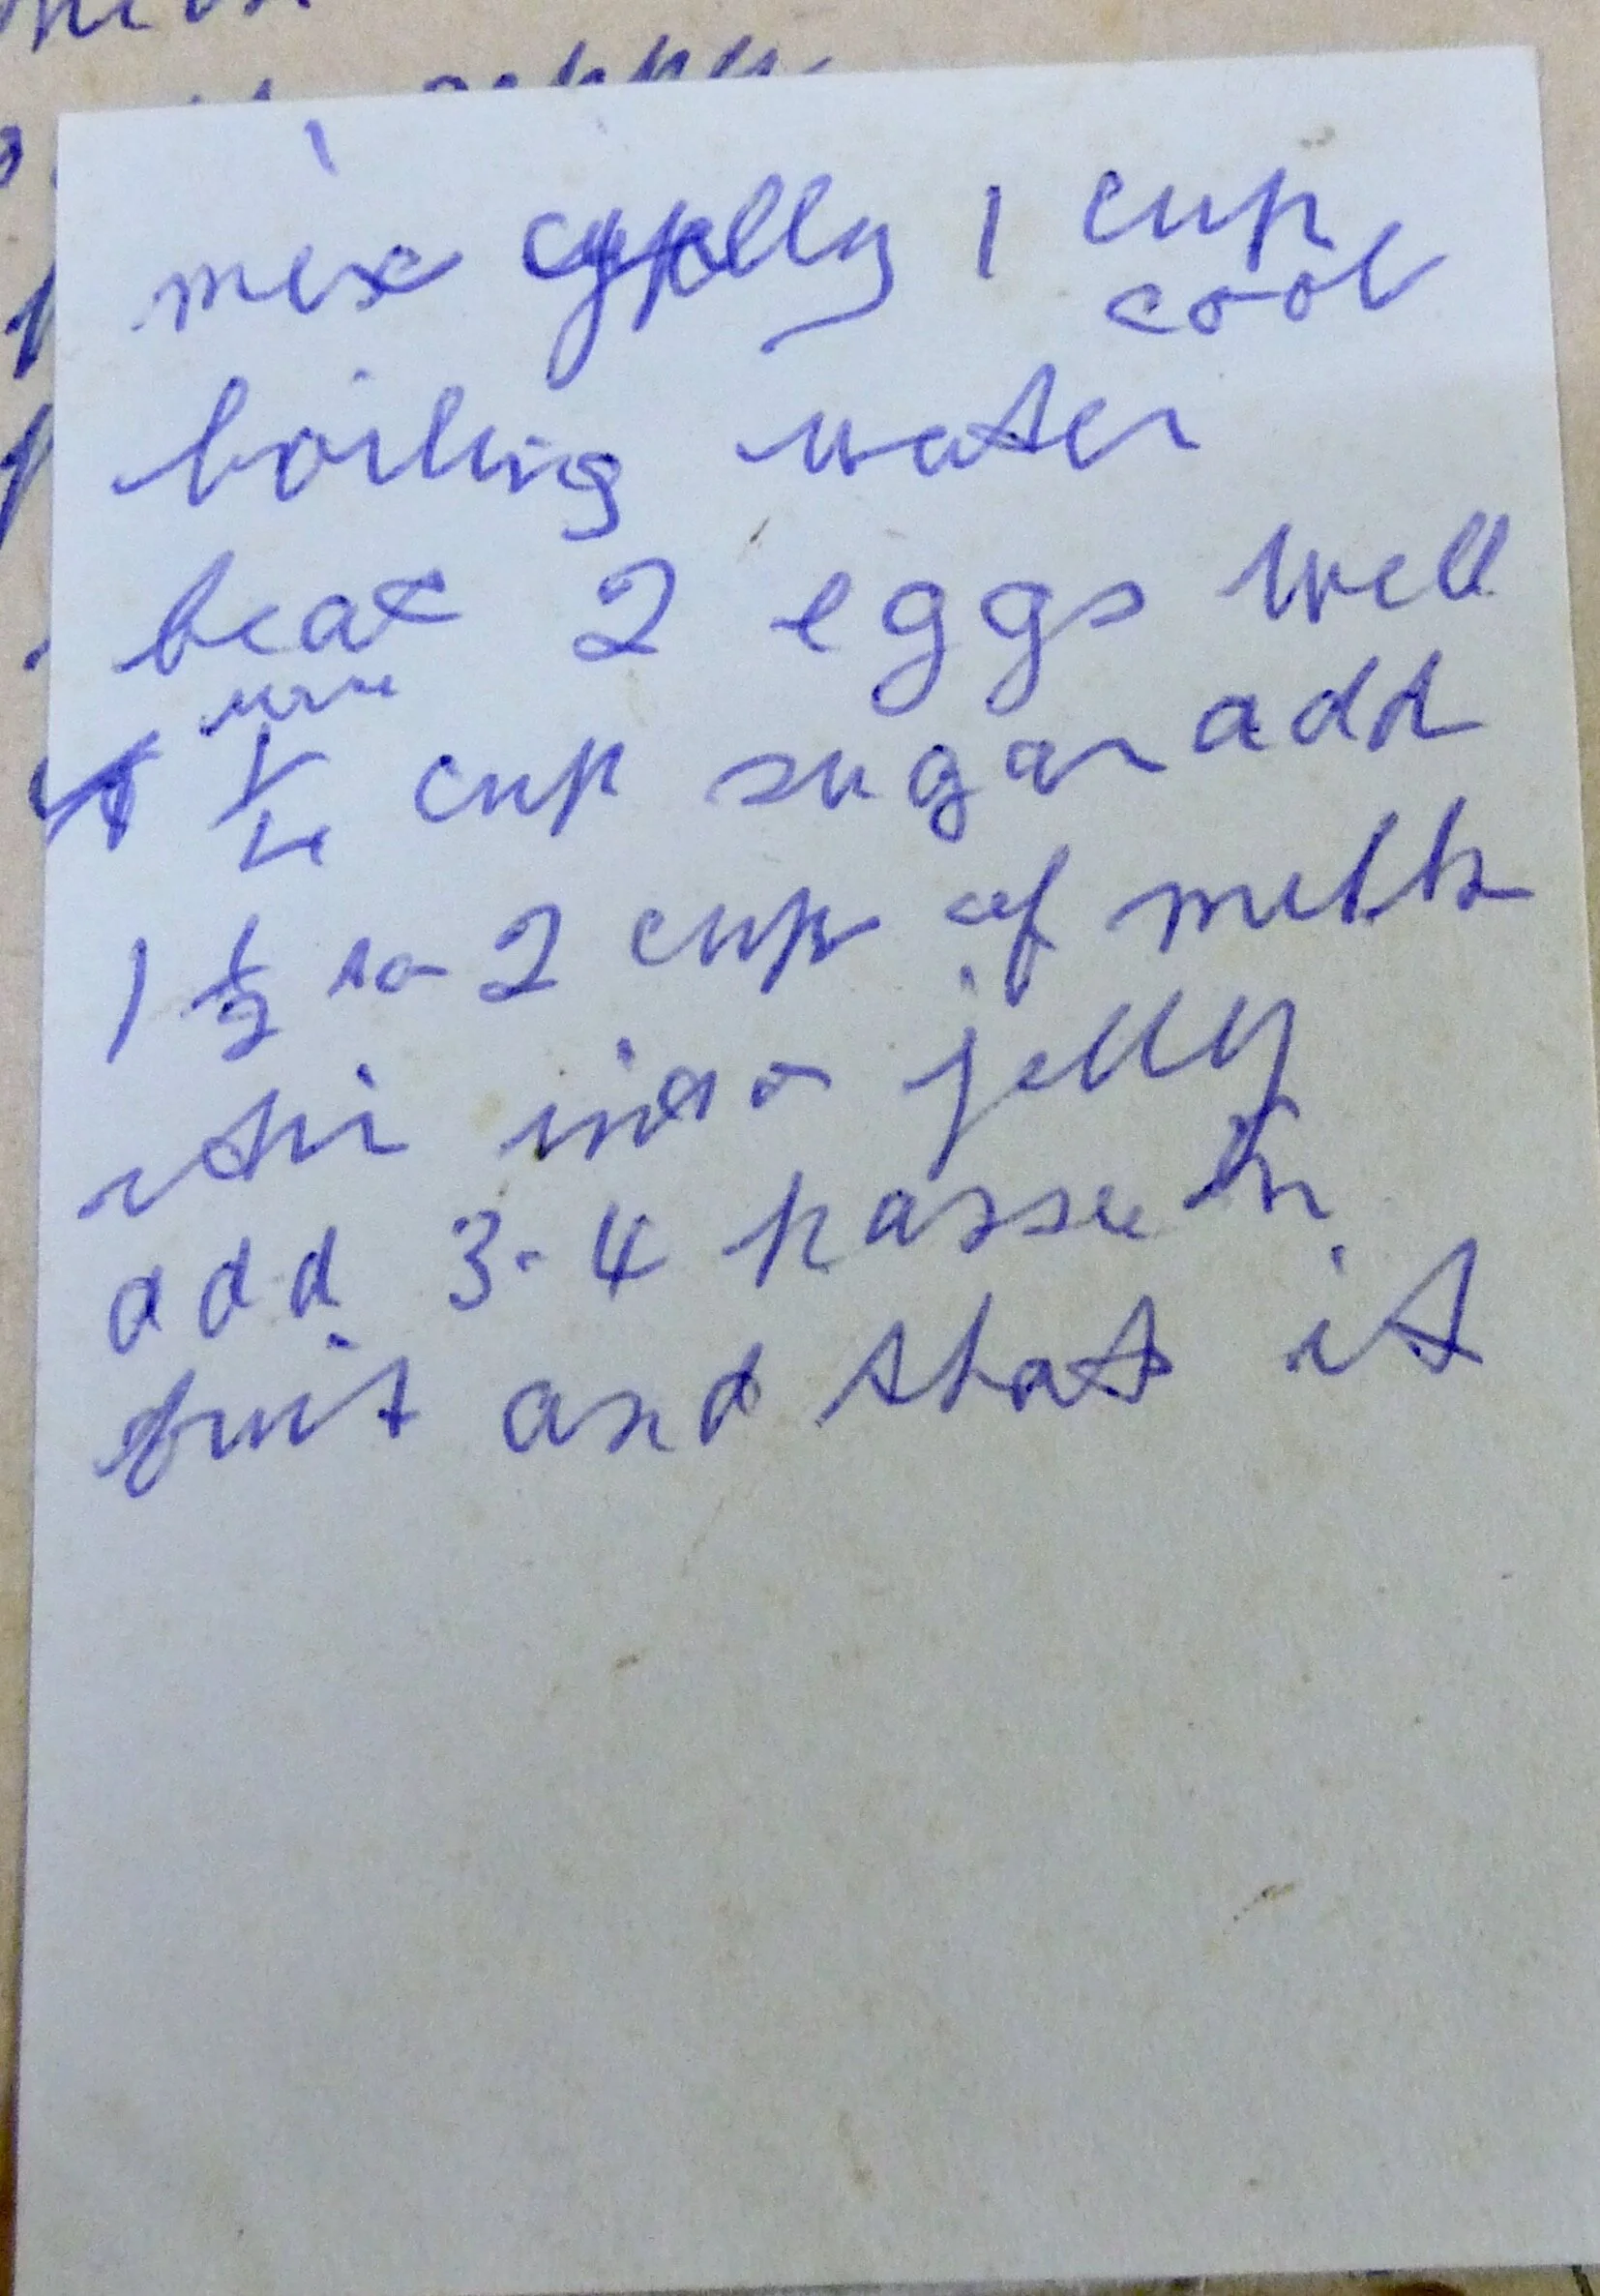 mix jelly 1 cup
cool
boiling water
beat 2 eggs well
cup sugar add
1 1/2 to 2 cup of milk
stir into jelly
add 3-4 passion
fruit and that it